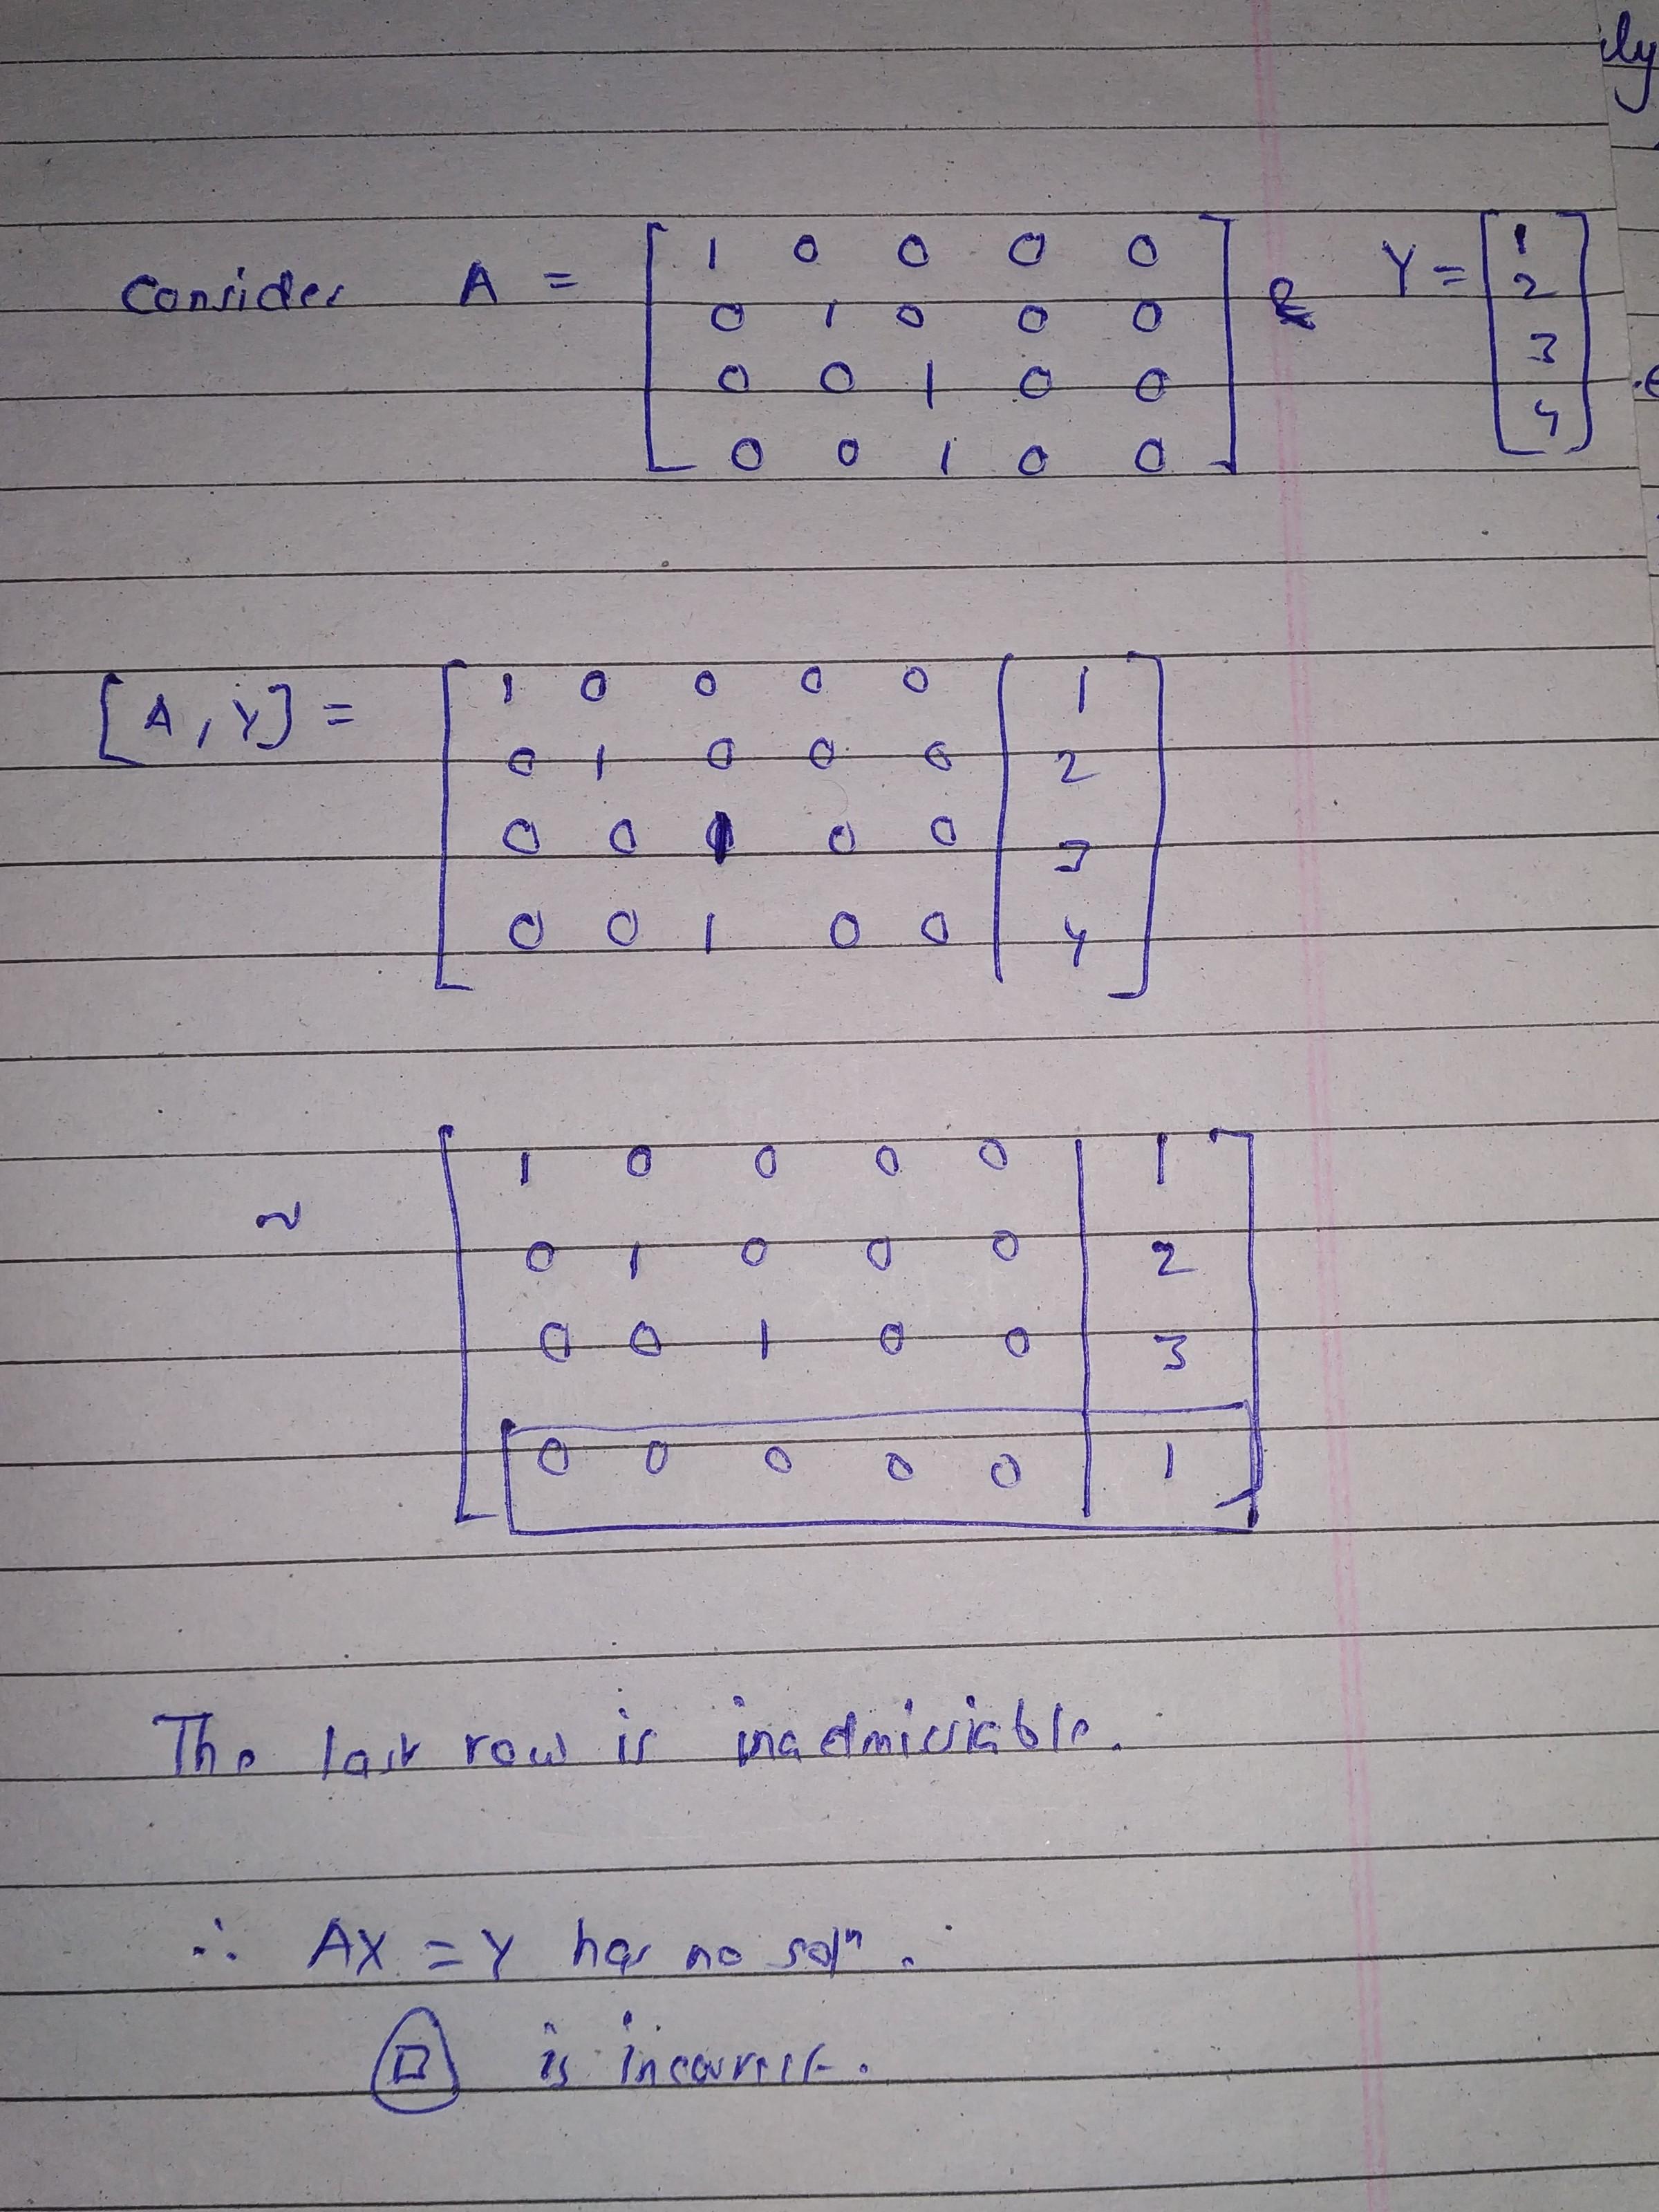 ily
Consider A = [ 1 0 0 0 0 ] & Y = [ 1 ]
[ 0 1 0 0 0 ] [ 2 ]
[ 0 0 1 0 0 ] [ 3 ]
[ 0 0 1 0 0 ] [ 4 ]
[A, Y] = [ 1 0 0 0 0 | 1 ]
[ 0 1 0 0 0 | 2 ]
[ 0 0 1 0 0 | 3 ]
[ 0 0 1 0 0 | 4 ]
~ [ 1 0 0 0 0 | 1 ]
[ 0 1 0 0 0 | 2 ]
[ 0 0 1 0 0 | 3 ]
[ 0 0 0 0 0 | 1 ]
The last row is inadmissiable.
∴ AX = Y has no solⁿ.
D is incorrect.